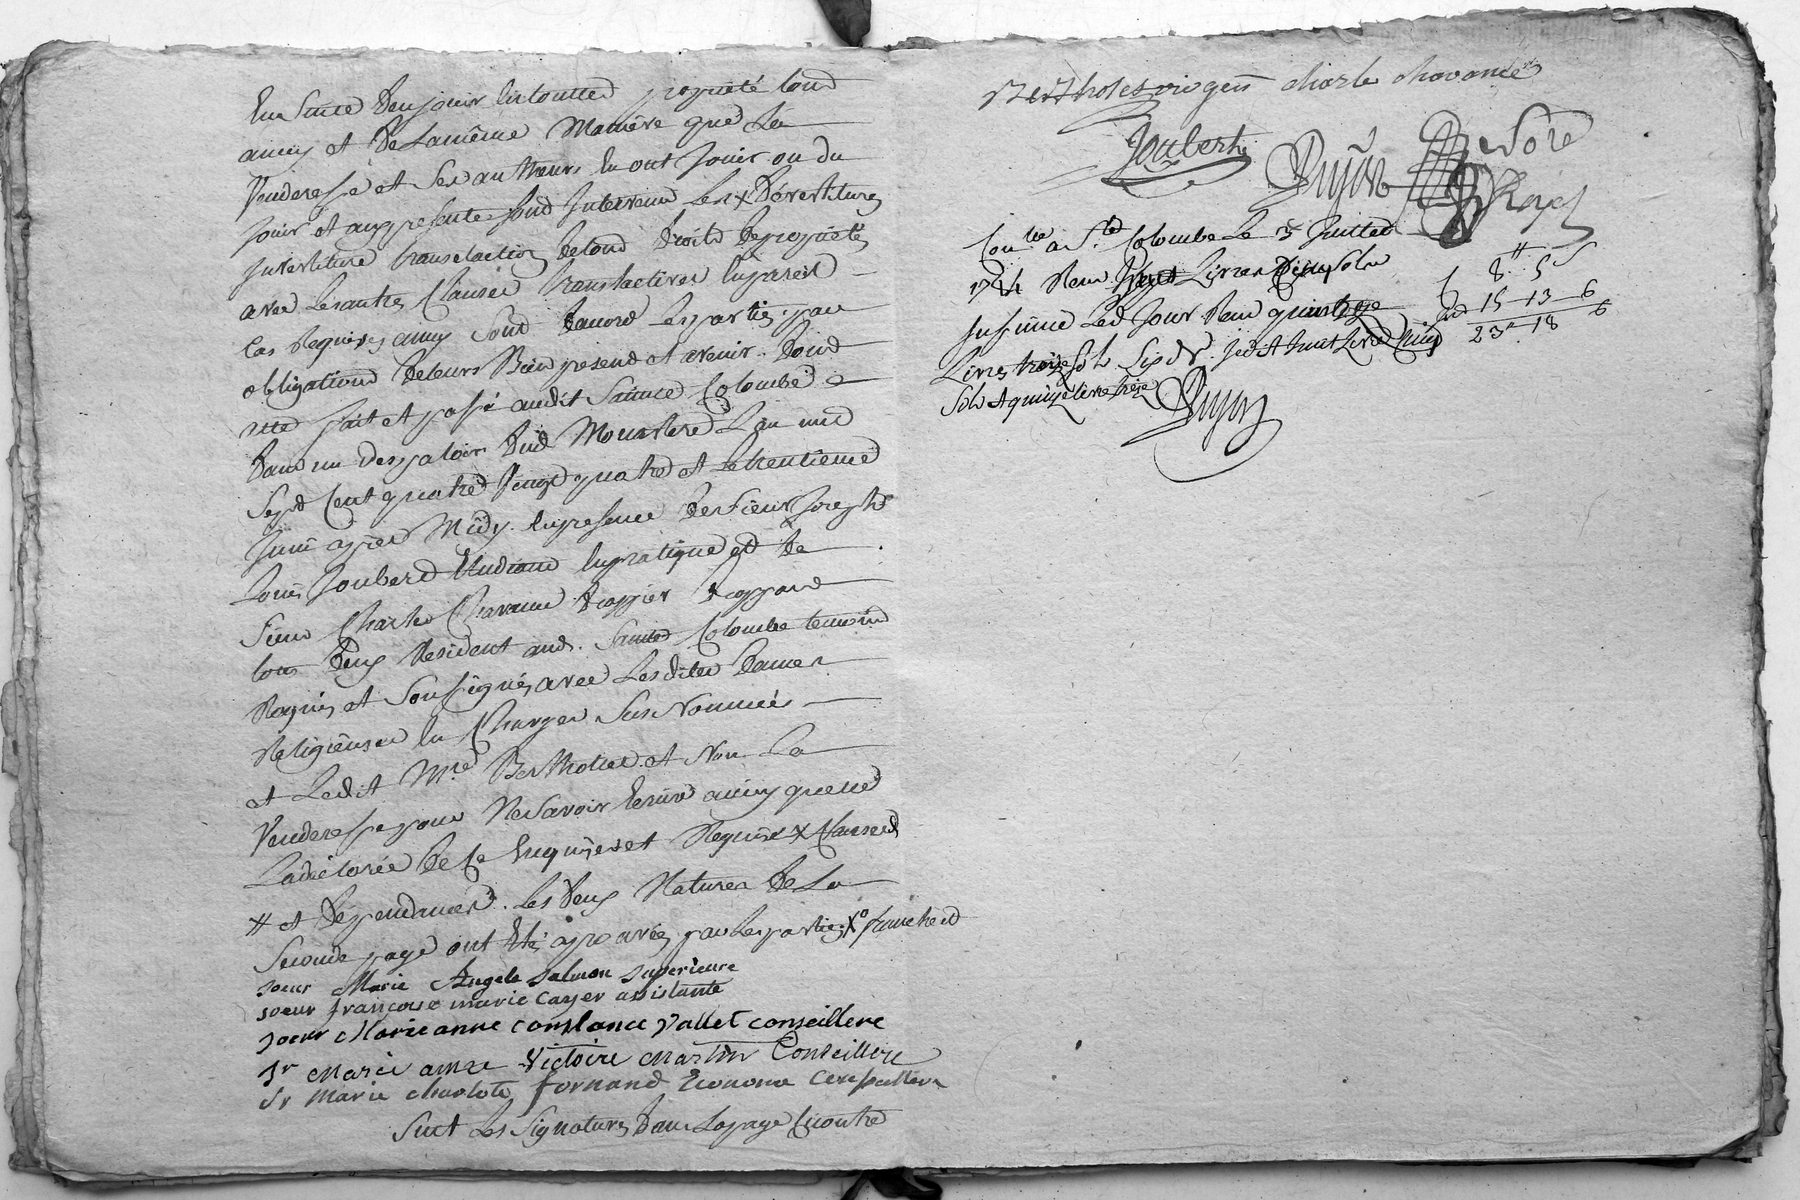 Ensuite d'en jouir en toutte propriété tout
ainsy et de La même Manière que La
Venderesse et Ses autheurs En ont Jouir ou du
Jouir et aux presentes sont Intervenu Les x Dévestitures
Investiture translaction de tous droits de propriétés
avec Les autres Clauses translatives En pareil
Cas Requises ainsy Sont d'accord Les parties par
obligations de leurs Bien present et avenir. Dont
acte fait et passé audit Sainte Colombe
dans un des parloir dud Monastere L'an mil
Sept Cent quatre Vingt quatre et Le trentieme
Juin après Midy. En presence de Sieur Joseph
Louis Joubert Etudiant En pratique et de
Sieur Charle Chavance drappier drappant
tous deux Resident aud. Sainte Colombe temoins
Requis et Soussignés avec Lesdites Dames
Religieuses En Charges Sus Nommées
et Ledit Mre Bertholet et Non La
Venderesse pour Ne Savoir Ecrire ainsy quelle
L'a déclarée de Ce Enquise et Requise x Clauses
# et Dépendances. Les deux Natures de La
Seconde page ont Etés aprouvées par Les parties Xo franche et
soeur Marie Angele Salmon superieure
soeur françoise marie Cayer assistante
soeur Marieanne Constance vallet conseillere
Sr Marie anne Victoire Martin Conseillere
Sr Marie charlote fornand Econome Conseillere
Suit Les Signatures dans La page Cicontre
charle chavance
Joubert
Con.lle a S.te Colombe Le 3 Juillet
1784 Reçu huit Livres Cinq Sols
Insinué Led Jour Reçu quinze
Livres treize Sols Six d.rs Jedit huit Livres Cinq
Sols et quinze Livres treize
8# 5s
15 – 13 – 6
23# 18 6